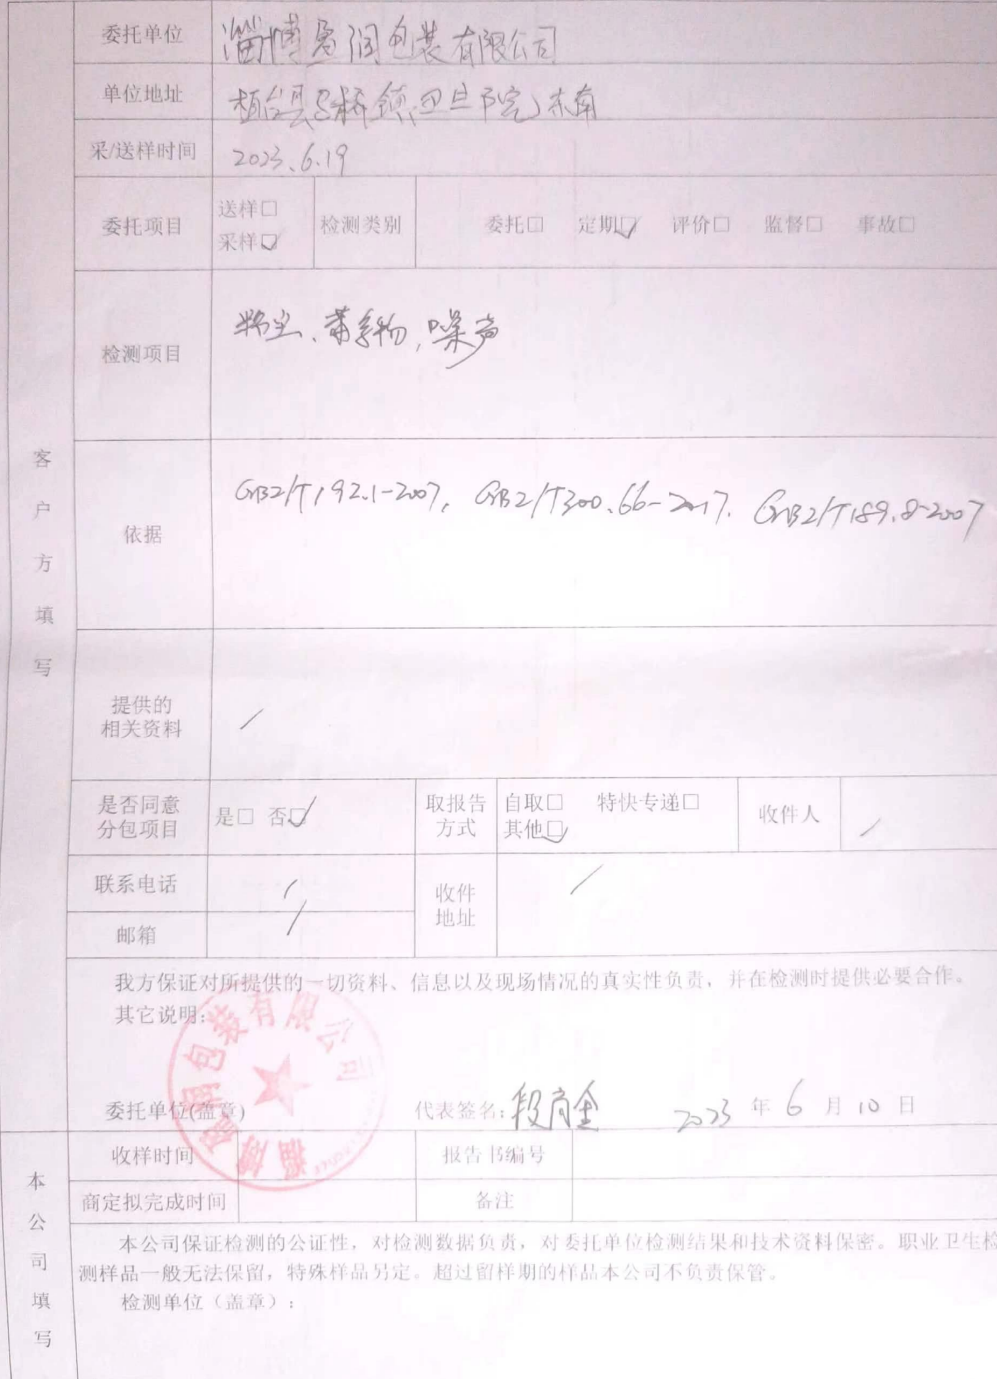 委托单位 淄博鲁润包装有限公司
单位地址 桓台县马桥镇 东南
采/送样时间 2023.6.19
委托项目 送样□ 采样☑ 检测类别 委托□ 定期☑ 评价□ 监督□ 事故□
检测项目 粉尘、苯系物,噪声
客户方填写
依据 GBZ/T192.1-2007, GBZ/T300.66-2017. GBZ/T189.8-2007
提供的
相关资料 /
是否同意
分包项目 是□ 否☑ 取报告
方式 自取□ 特快专递□
其他☑ 收件人 /
联系电话 / 收件
地址 /
邮箱 /
我方保证对所提供的一切资料、信息以及现场情况的真实性负责,并在检测时提供必要合作。
其它说明:
委托单位(盖章) 代表签名: 2023 年 6 月 10 日
包装有限公司
本公司填写
收样时间 报告书编号
商定拟完成时间 备注
本公司保证检测的公证性,对检测数据负责,对委托单位检测结果和技术资料保密。职业卫生检
测样品一般无法保留,特殊样品另定。超过留样期的样品本公司不负责保管。
检测单位(盖章):